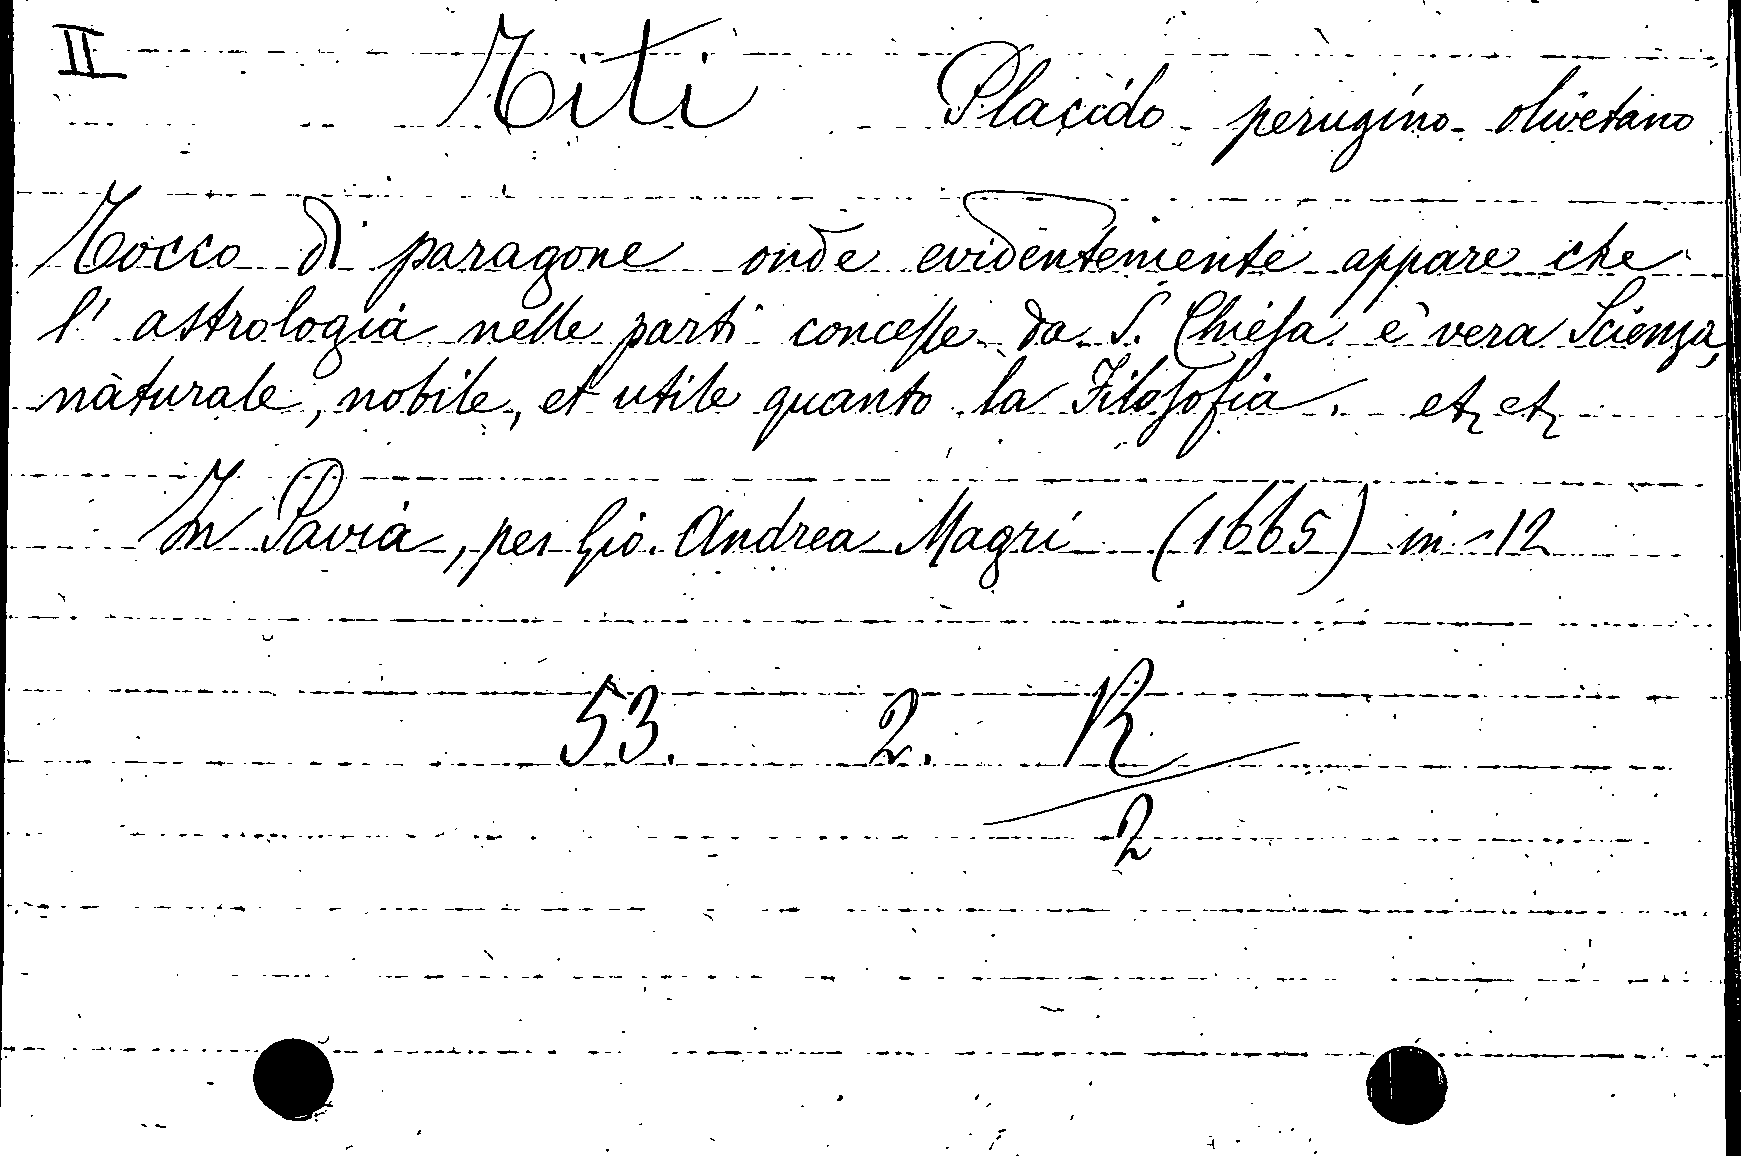 II Titi Placido perugino olivetano
Tocco di paragone onde evidentemente appare che
l' astrologia nelle parti concesse da S. Chiesa è vera Scienza,
naturale, nobile, et utile quanto la Filosofia. etc etc
In Pavia, per Gio. Andrea Magri (1665) in-12
53. 2. R
2